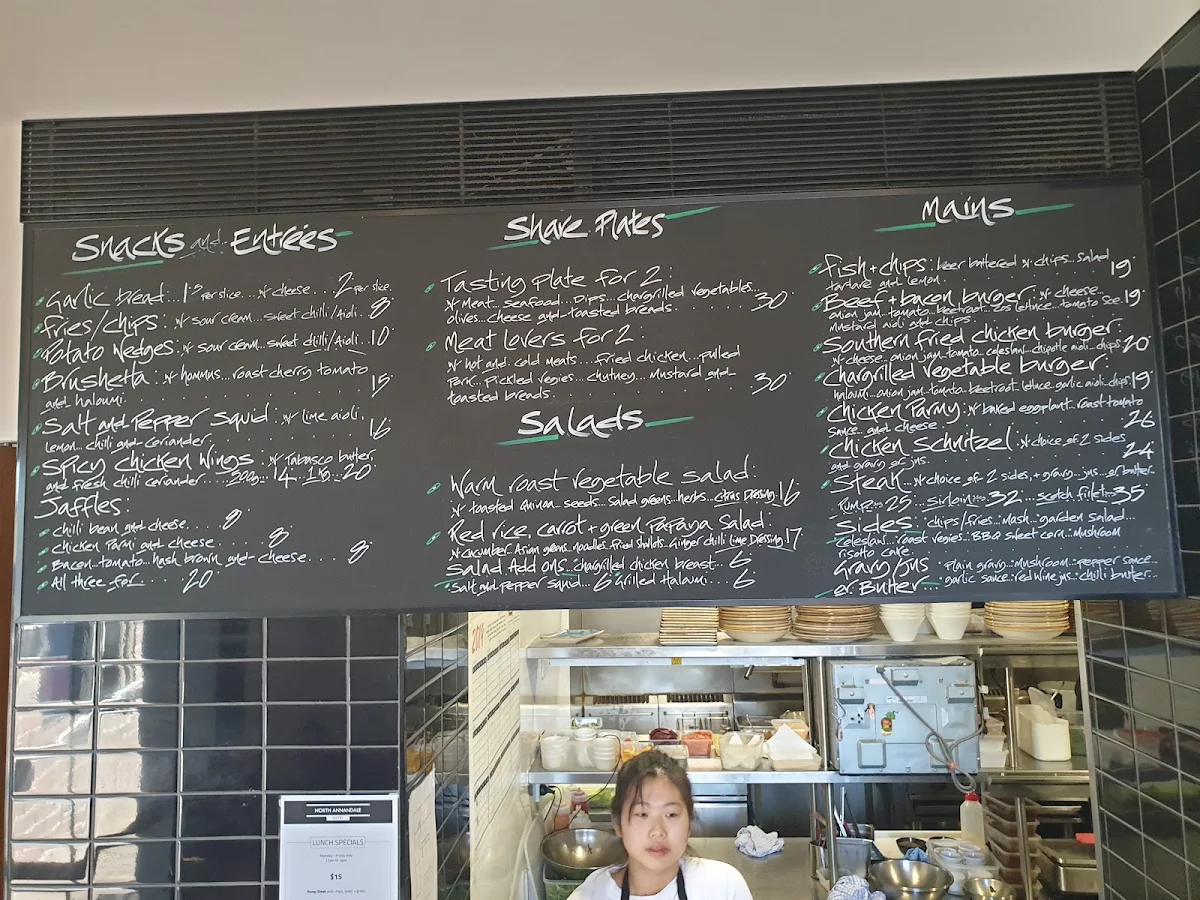 Snacks and Entrées
Garlic bread...1.5 per slice...w cheese...2. per slice.
Fries/chips: w sour cream...sweet chilli/Aioli. 8.
Potato wedges: w sour cream...sweet chilli/Aioli. 10.
Brushetta: w hommus...roast cherry tomato
and haloumi. 15.
Salt and Pepper Squid: w lime aioli,
lemon...chilli and coriander. 16
Spicy Chicken Wings: w Tabasco butter,
and fresh chilli coriander...500g...14. 1kg...20.
Jaffles:
Chilli bean and cheese....8.
Chicken Parmi and cheese....8.
Bacon...tomato...hash brown and cheese...8.
All three for...20.
Share Plates
Tasting plate for 2:
w Meat...seafood...Dips...chargrilled vegetables...
olives...cheese and toasted breads. 30.
Meat lovers for 2:
w hot and cold meats...fried chicken...pulled
Pork. Pickled vegies...chutney...mustard and
toasted breads. 30.
Salads
Warm roast vegetable salad:
w toasted quinoa...seeds...salad greens...herbs...citrus Dressing. 16
Red rice, carrot + green Papaya Salad:
w cucumber Asian greens...noodles fried shallots...Ginger chilli lime Dressing. 17
Salad Add ons...chargrilled chicken breast...6
Salt and pepper squid...6 Grilled Halumi...6
Mains
Fish + chips: beer buttered w chips...Salad
tartare and lemon. 19.
Beef + bacon burger: w cheese...
onion jam...tomato...beetroot...cos lettuce...tomato sce. 19.
mustard aioli and chips
Southern fried chicken burger:
w cheese...onion jam...tomato celeslaw...chipotle aioli...chips. 20.
Chargrilled vegetable burger:
haloumi...onion jam...tomato...beetroot...lettuce...garlic aioli...chips. 19.
Chicken Parmy: w baked eggplant...roast tomato
sauce...and cheese. 26
Chicken Schnitzel: w choice of 2 sides
and gravy or jus. 24
Steak...w choice of 2 sides, + gravy...jus...or butter
Rump...25. Sirloin...32. Scotch fillet...35
Sides: chips/fries...Mash...garden salad...
Celeslaw...roast vegies...BBQ sweet corn...Mushroom
risotto cake.
Gravy/Jus: Plain gravy...Mushroom...pepper sauce...
or Butter...garlic sauce...red wine jus...chilli butter...
2019
NORTH ANNANDALE
HOTEL
LUNCH SPECIALS
$15